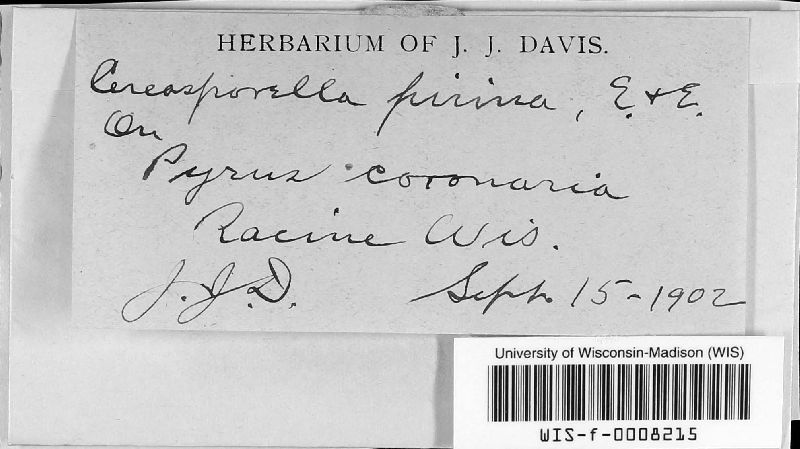 HERBARIUM OF J. J. DAVIS.
Cercosporella pirina, E. & E.
On
Pyrus coronaria
Racine Wis.
J. J. D. Sept. 15-1902
University of Wisconsin-Madison (WIS)
WIS-f-0008215